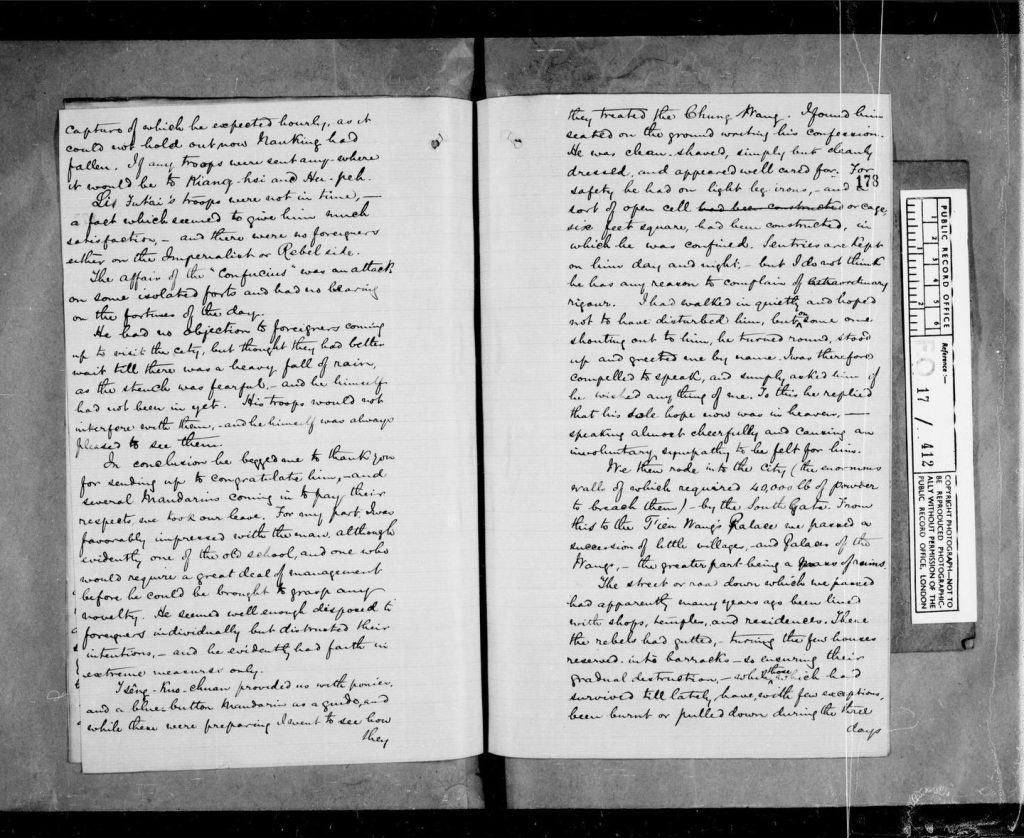 capture of which he expected hourly, as it
could not hold out now Nanking had
fallen. If any troops were sent any-where
it would be to Kiang-hsi and Hu-peh.
Lis Futai's troops were not in time, —
a fact which seemed to give him much
satisfaction, – and there were no foreigners
either on the Imperialist or Rebel side.
The affair of the "Confucius" was an attack
on some isolated forts and had no bearing
on the fortunes of the day.
He had no objection to foreigners coming
up to visit the city, but thought they had better
wait till there was a heavy fall of rain,
as the stench was fearful, – and he himself
had not been in yet. His troops would not
interfere with them, – and he himself was always
pleased to see them.
In conclusion he begged me to thank you
for sending up to congratulate him, – and
several Mandarins coming in to pay their
respects, we took our leave. For my part I was
favorably impressed with the man, although
evidently one of the old school, and one who
would require a great deal of management
before he could be brought to grasp any
novelty. He seemed well enough disposed to
foreigners individually but distrusted their
intentions, – and he evidently had faith in
extreme measures only.
Tsêng-Kuo-chuan provided us with ponies,
and a blue button Mandarin as a guide, and
while these were preparing I went to see how
they
they treated the Chung Wang. I found him
seated on the ground writing his confession.
He was clean-shaved, simply but cleanly
dressed, and appeared well cared for. For
178
safety he had on light leg irons, – and a
sort of open cell had been constructed or cage,
six feet square, had been constructed, in
which he was confined. Sentries are kept
on him day and night, – but I do not think
he has any reason to complain of extraordinary
rigour. I had walked in quietly and hoped
not to have disturbed him, but on some one
shouting out to him, he turned round, stood
up and greeted me by name. I was therefore
compelled to speak, and simply asked him if
he wished anything of me. To this he replied
that his sole hope now was in heaven, —
speaking almost cheerfully and causing an
involuntary sympathy to be felt for him.
We then rode into the City (the enormous
walls of which required 40,000 lb of powder
to breach them) – by the South Gate. From
this to the T'ien Wang's Palace we passed a
succession of little villages, – and Palaces of the
Wangs, – the greater part being a mass of ruins.
The street or road down which we passed
had apparently many years ago been lined
with shops, temples, and residences. These
the rebels had gutted, – turning the few houses
reserved into barracks – so ensuring their
gradual destruction, – while those which had
survived till lately, have, with few exceptions,
been burnt or pulled down during the three
days
PUBLIC RECORD OFFICE
1 2 3 4 5 6
1 2
Reference:-
FO 17 / 412
COPYRIGHT PHOTOGRAPH—NOT TO
BE REPRODUCED PHOTOGRAPHIC-
ALLY WITHOUT PERMISSION OF THE
PUBLIC RECORD OFFICE, LONDON